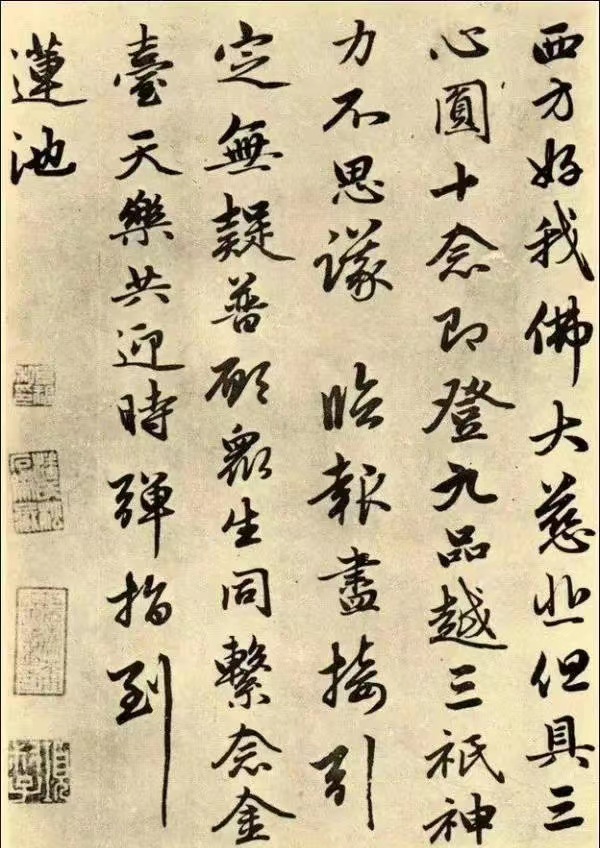 西方好我佛大慈悲但具三
心圓十念即登九品越三祇神
力不思議 臨報盡接引
定無疑普願衆生同繫念金
臺天樂共迎時彈指到
蓮池